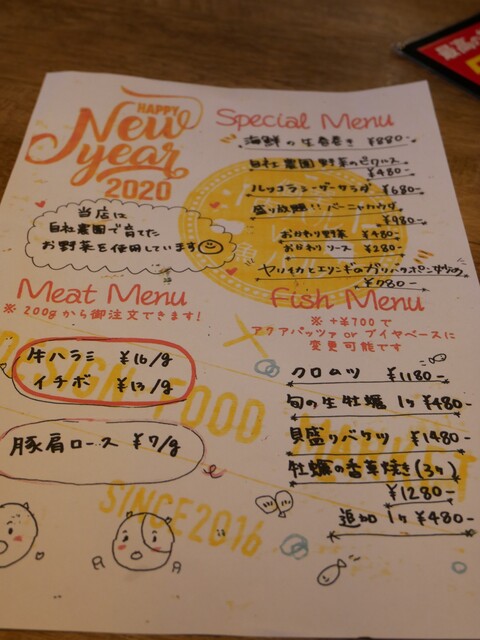 HAPPY
New
year
2020
当店は
自社農園で育てた
お野菜を使用しています
Special Menu
海鮮の生春巻き ¥880-
自社農園野菜のピクルス
¥480-
ルッコラシーザーサラダ ¥680-
盛り放題!! バーニャカウダ
¥980-
おかわり野菜 ¥480-
おかわりソース ¥280-
ヤリイカとエリンギのガリバタポン炒め
¥780-
Meat Menu
※ 200gから御注文できます!
牛ハラミ ¥16/g
イチボ ¥13/g
豚肩ロース ¥7/g
Fish Menu
※ +¥700で
アクアパッツァ or ブイヤベースに
変更可能です
クロムツ ¥1180-
旬の生牡蠣 1ヶ ¥480-
貝盛りバケツ ¥1480-
牡蠣の香草焼き(3ヶ)
¥1280-
追加 1ヶ ¥480-
DESIGN FOOD MARKET
SINCE 2016